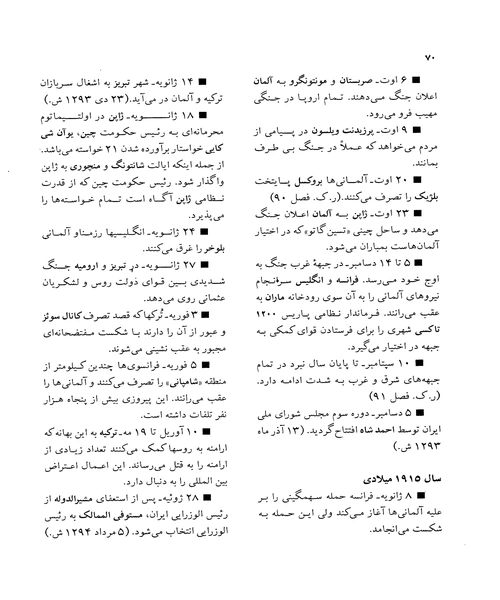 ۷۰
■ ۶ اوت ـ صربستان و مونتونگرو به آلمان
اعلان جنگ می‌دهند. تمام اروپا در جنگی
مهیب فرو می‌رود.
■ ۹ اوت ـ پرزیدنت ویلسون در پیامی از
مردم می‌خواهد که عملاً در جنگ بی طرف
بمانند.
■ ۲۰ اوت ـ آلمانی‌ها بروکسل پایتخت
بلژیک را تصرف می‌کنند.(ر.ک. فصل ۹۰)
■ ۲۳ اوت ـ ژاپن به آلمان اعلان جنگ
می‌دهد و ساحل چینی «تسین گائو» که در اختیار
آلمان‌هاست بمباران می‌شود.
■ ۵ تا ۱۴ دسامبر ـ در جبهۀ غرب جنگ به
اوج خود می‌رسد. فرانسه و انگلیس سرانجام
نیروهای آلمانی را به آن سوی رودخانه ماران به
عقب می‌رانند. فرماندار نظامی پاریس ۱۲۰۰
تاکسی شهری را برای فرستادن قوای کمکی به
جبهه در اختیار می‌گیرد.
■ ۱۰ سپتامبر ـ تا پایان سال نبرد در تمام
جبهه‌های شرق و غرب به شدت ادامه دارد.
(ر.ک. فصل ۹۱)
■ ۵ دسامبر ـ دوره سوم مجلس شورای ملی
ایران توسط احمد شاه افتتاح گردید. (۱۳ آذر ماه
۱۲۹۳ ش.)
سال ۱۹۱۵ میلادی
■ ۸ ژانویه ـ فرانسه حمله سهمگینی را بر
علیه آلمانی‌ها آغاز می‌کند ولی این حمله به
شکست می‌انجامد.
■ ۱۴ ژانویه ـ شهر تبریز به اشغال سربازان
ترکیه و آلمان در می‌آید.(۲۳ دی ۱۲۹۳ ش.)
■ ۱۸ ژانویه ـ ژاپن در اولتیماتوم
محرمانه‌ای به رئیس حکومت چین، یوآن شی
کایی خواستار برآورده شدن ۲۱ خواسته می‌باشد.
از جمله اینکه ایالت شانتونگ و منچوری به ژاپن
واگذار شود. رئیس حکومت چین که از قدرت
نظامی ژاپن آگاه است تمام خواسته‌ها را
می‌پذیرد.
■ ۲۴ ژانویه ـ انگلیسیها رزمناو آلمانی
بلوخر را غرق می‌کنند.
■ ۲۷ ژانویه ـ در تبریز و ارومیه جنگ
شدیدی بین قوای دولت روس و لشکریان
عثمانی روی می‌دهد.
■ ۳ فوریه ـ تُرکها که قصد تصرف کانال سوئز
و عبور از آن را دارند با شکست مفتضحانه‌ای
مجبور به عقب نشینی می‌شوند.
■ ۵ فوریه ـ فرانسوی‌ها چندین کیلومتر از
منطقه «شامپانی» را تصرف می‌کنند و آلمانی‌ها را
عقب می‌رانند. این پیروزی بیش از پنجاه هزار
نفر تلفات داشته است.
■ ۱۰ آوریل تا ۱۹ مه ـ ترکیه به این بهانه که
ارامنه به روسها کمک می‌کنند تعداد زیادی از
ارامنه را به قتل می‌رساند. این اعمال اعتراض
بین المللی را به دنبال دارد.
■ ۲۸ ژوئیه ـ پس از استعفای مشیرالدوله از
رئیس الوزرایی ایران، مستوفی الممالک به رئیس
الوزرایی انتخاب می‌شود. (۵ مرداد ۱۲۹۴ ش.)